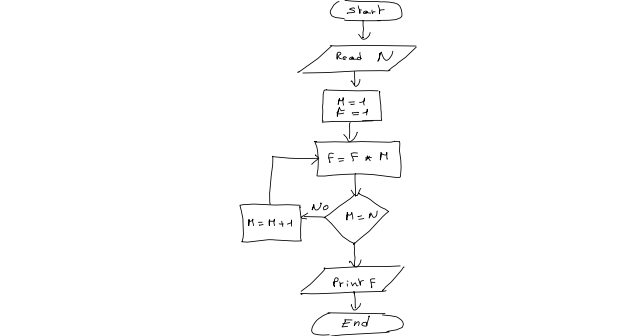 Start
Read N
M=1
F=1
F=F * M
No
M=N
M=M+1
Print F
End